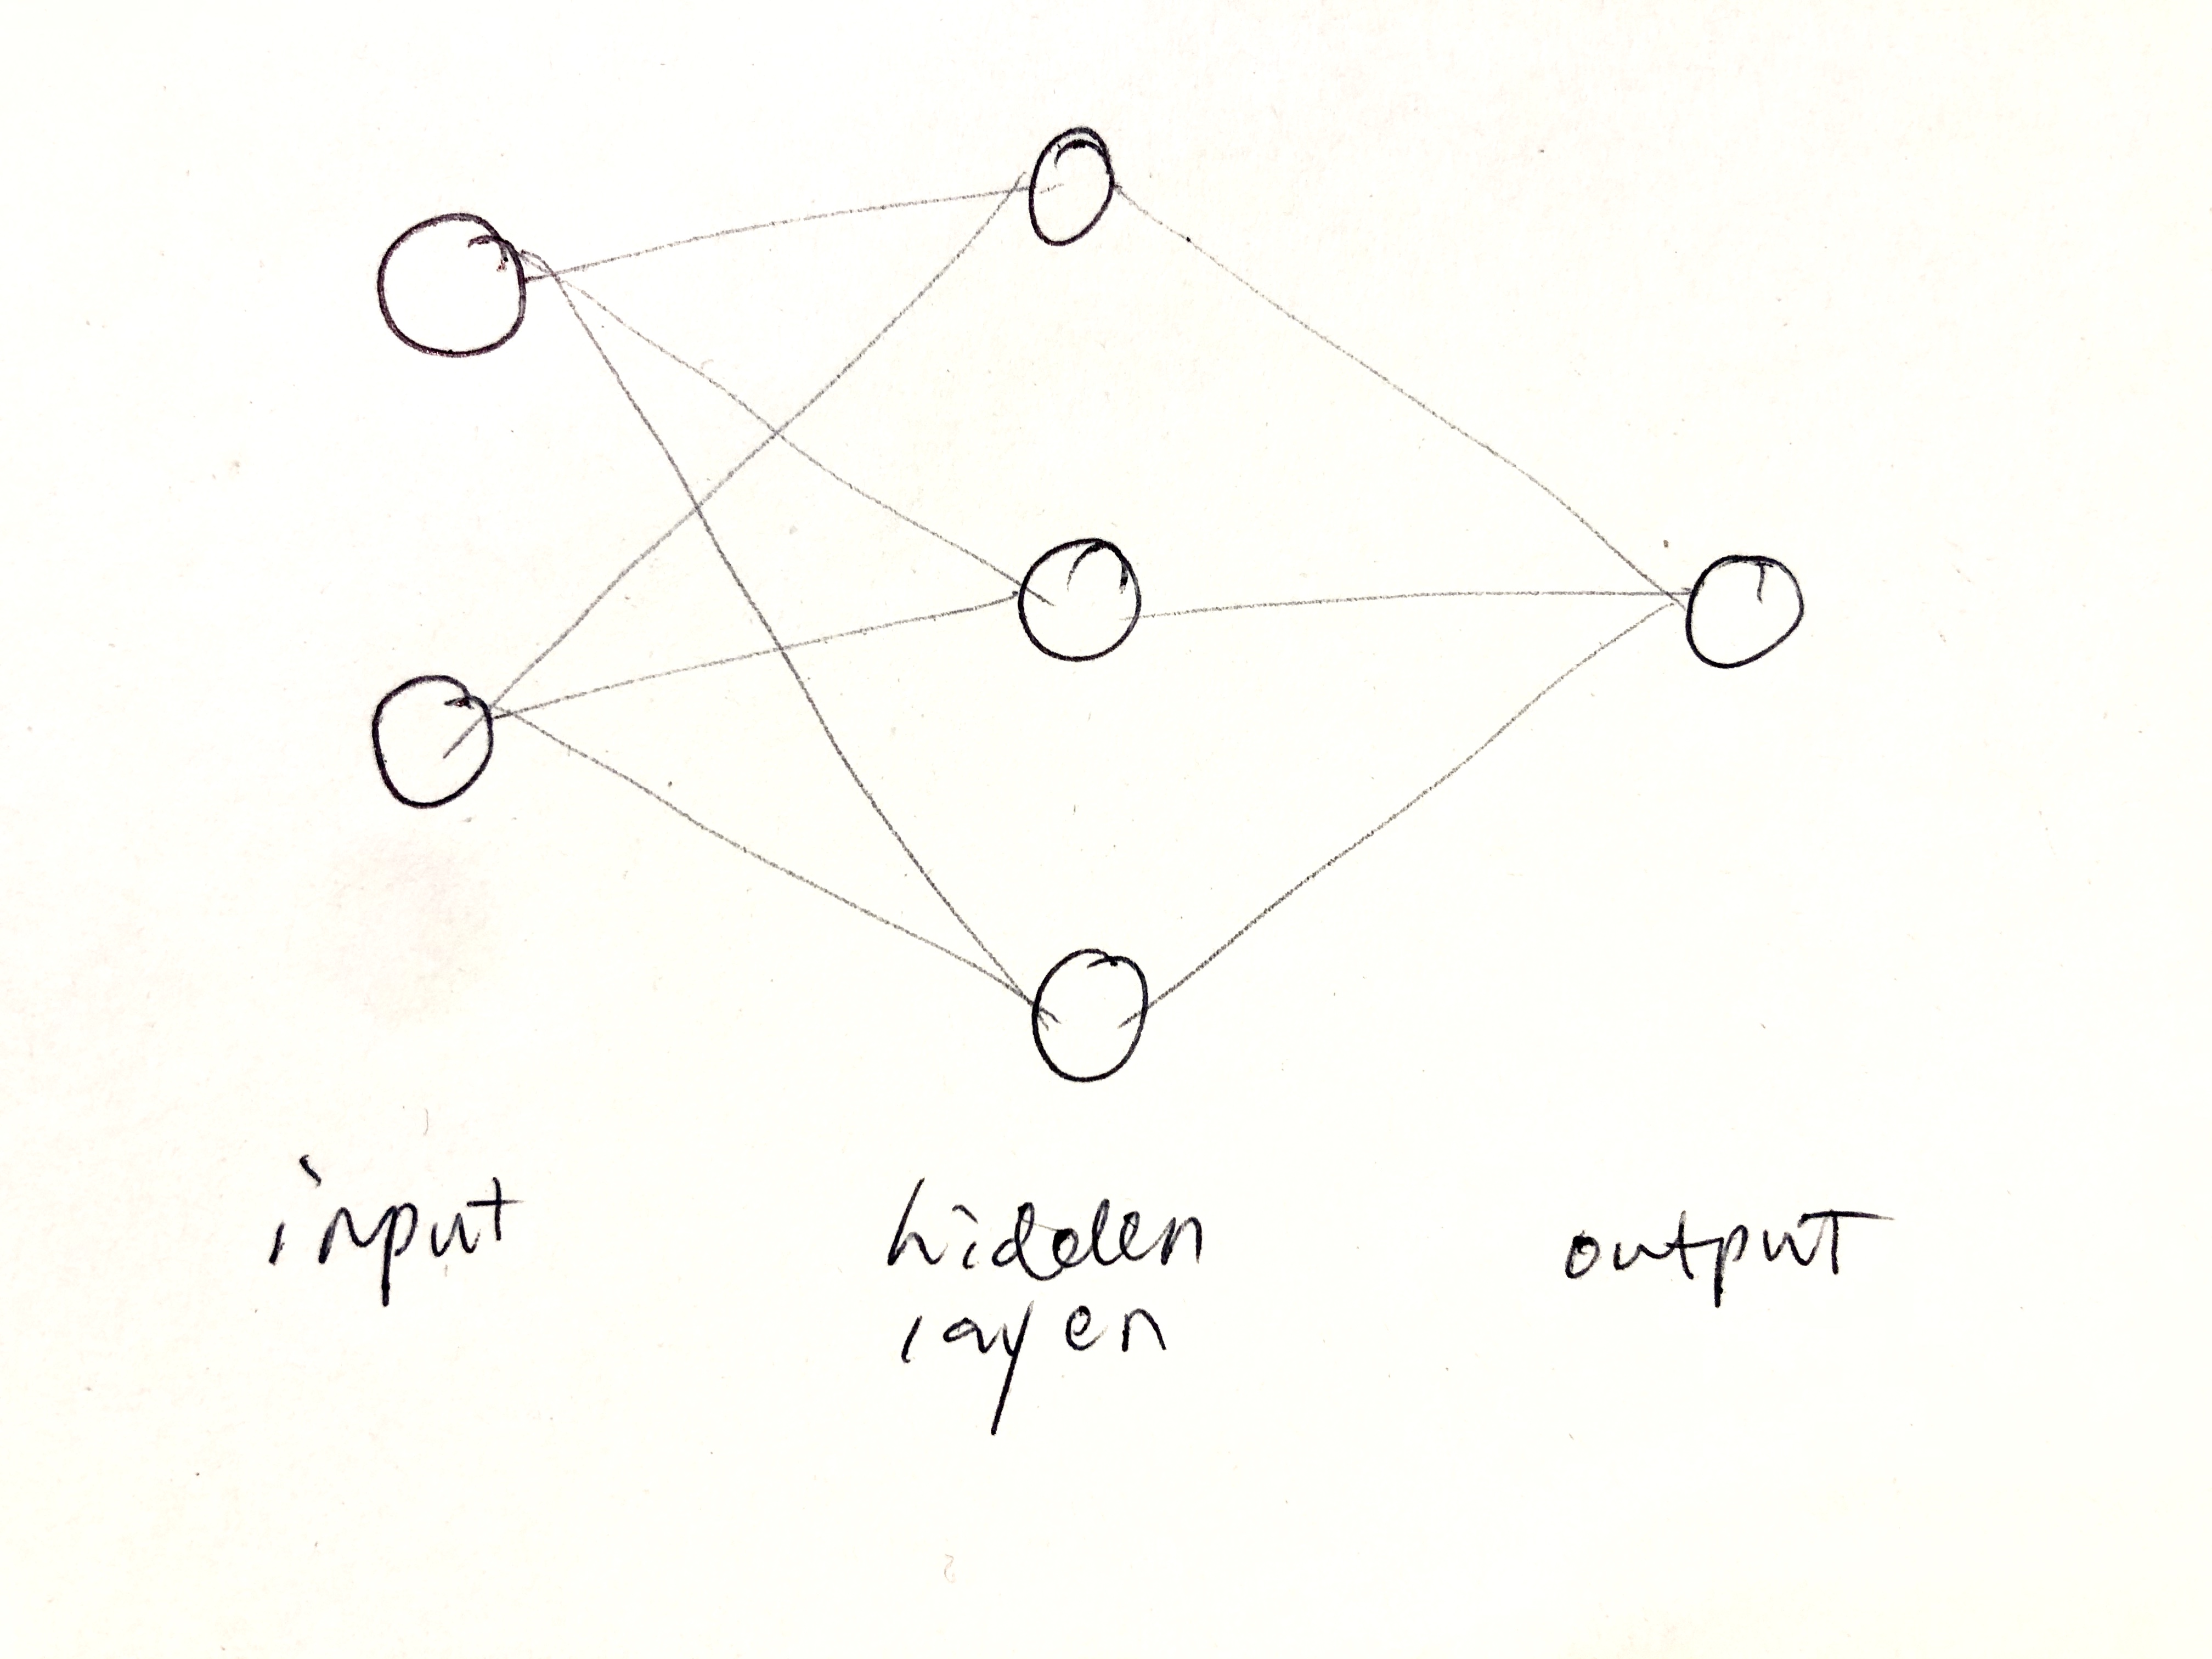 input
hidden
layer
output